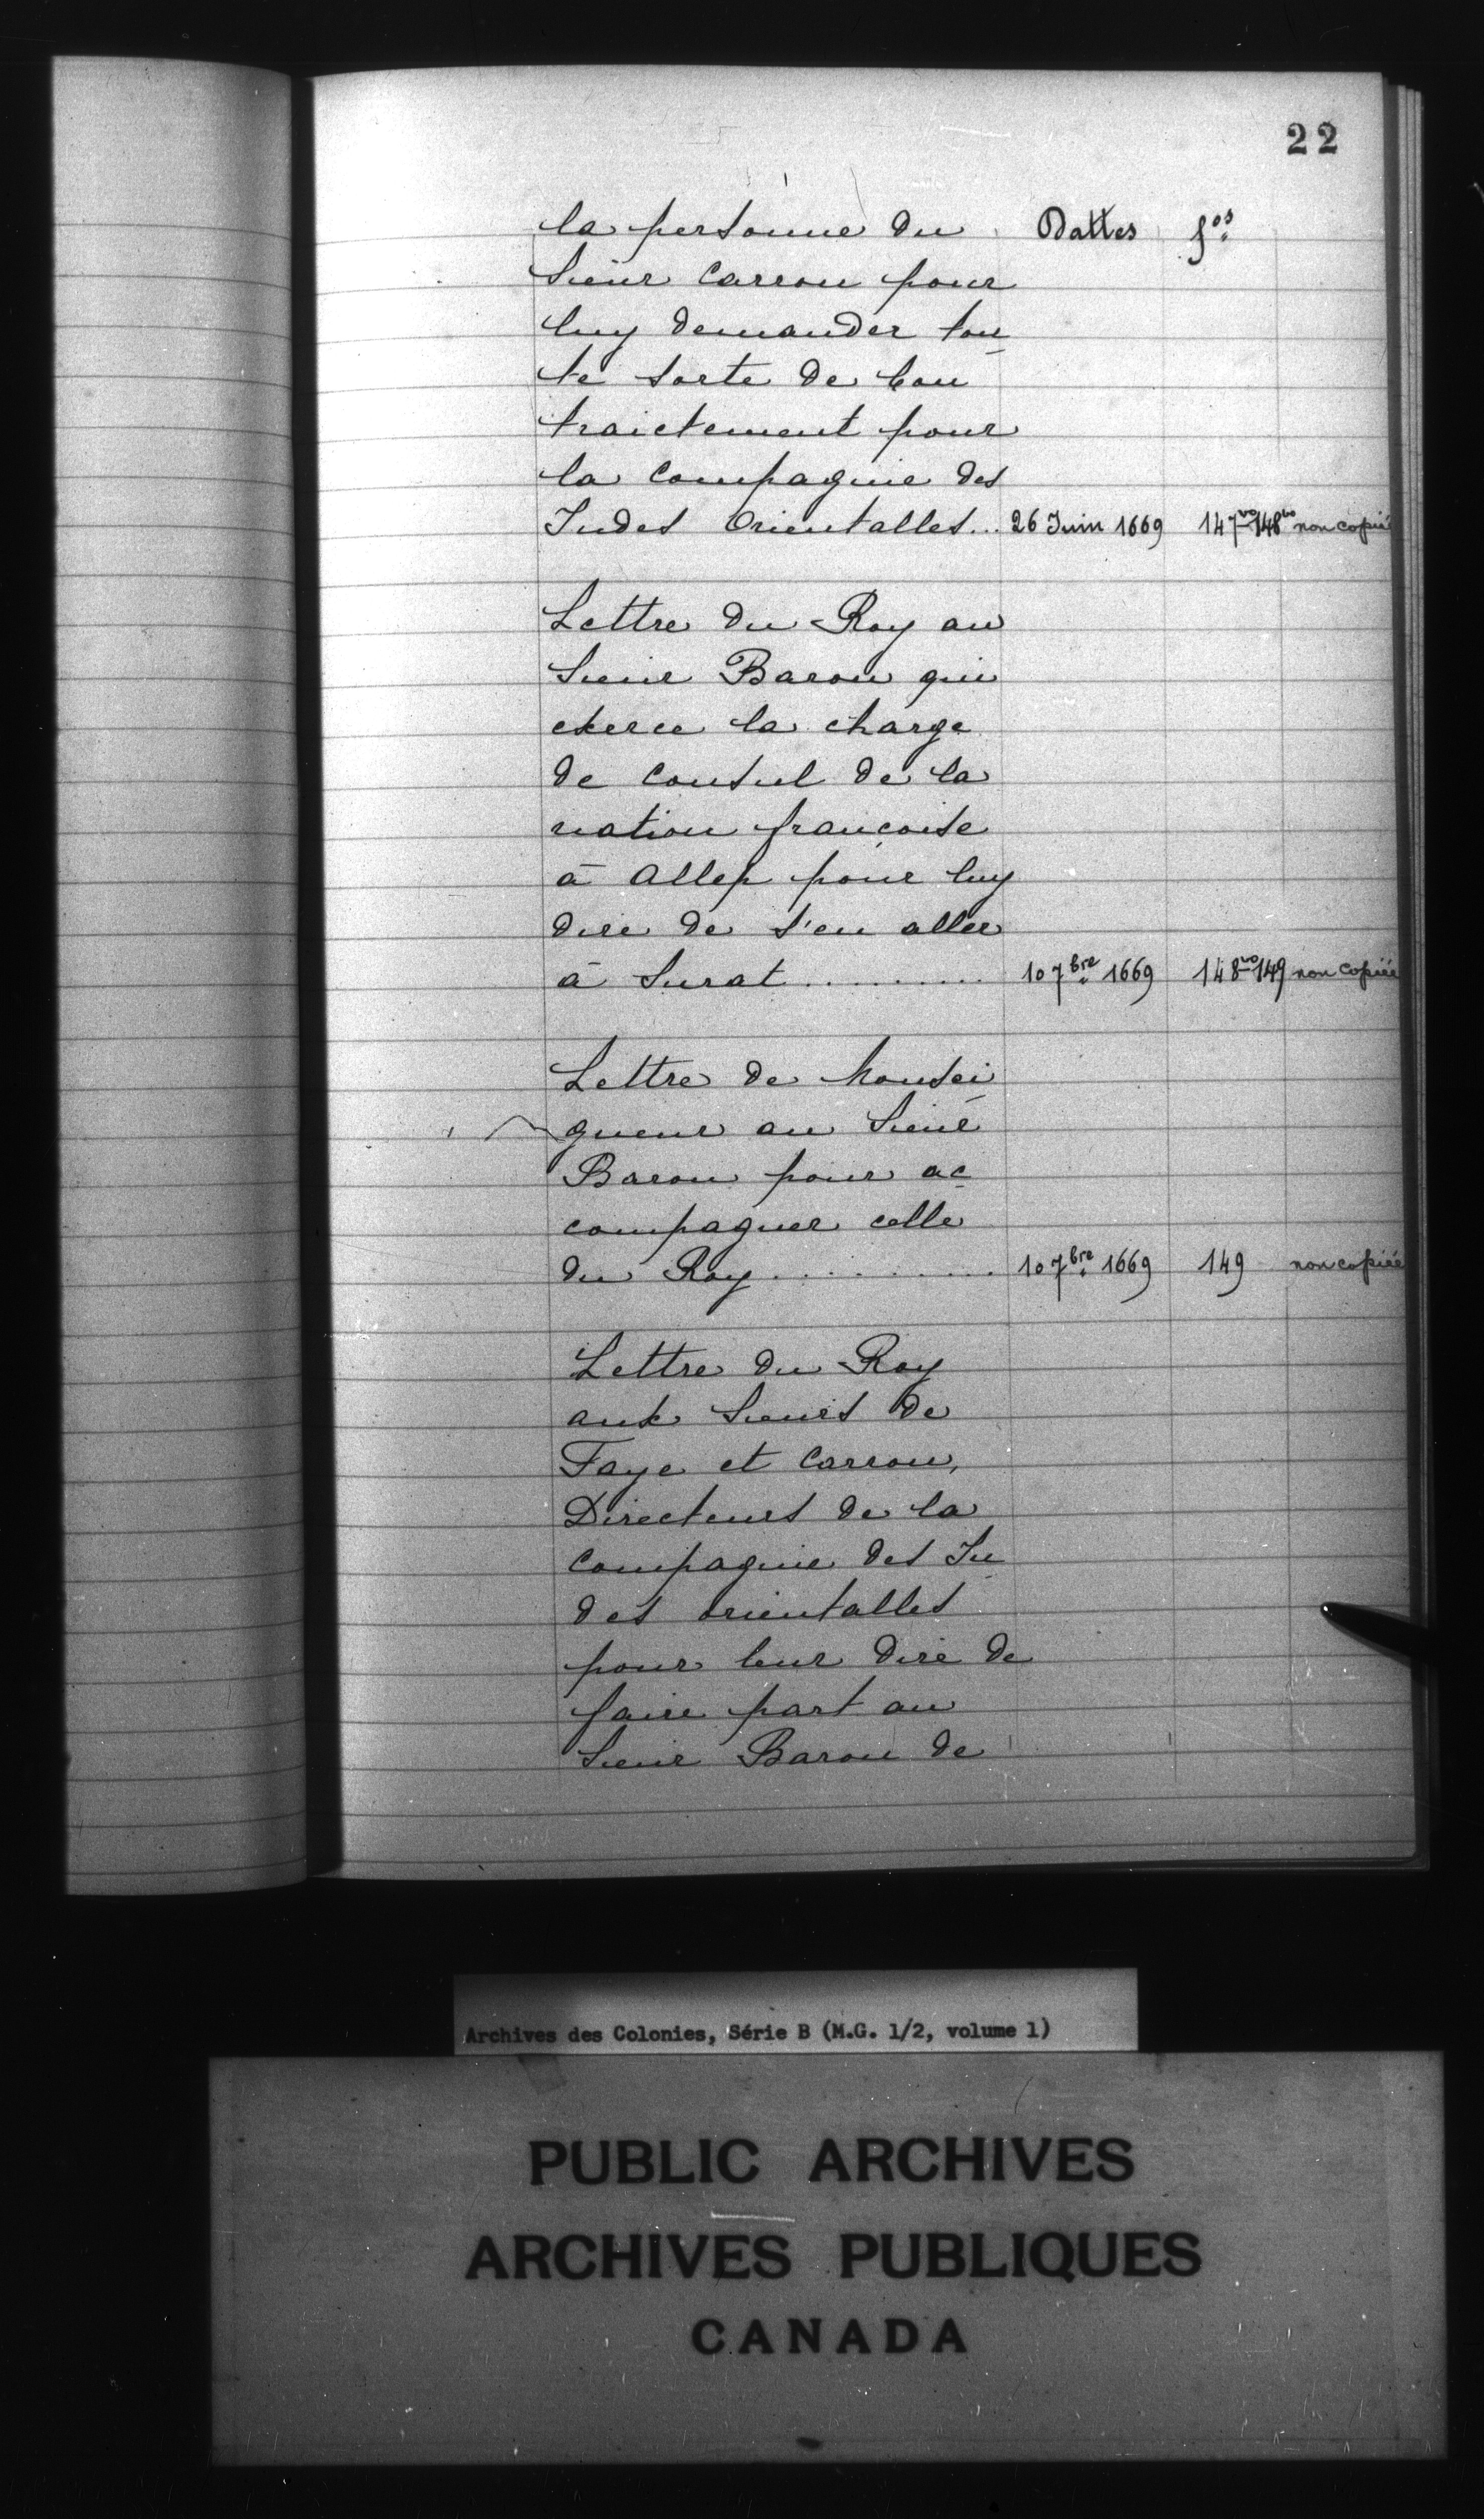 22
la personne du Dattes fos
Sieur Carron pour
luy demander tou
te sorte de bon
traictement pour
la Compagnie des
Indes Orientalles... 26 Juin 1669 147vo 148vo non copiée
Lettre du Roy au
Sieur Baron qui
exerce la charge
de Consul de la
nation françoise
à Allep pour luy
dire de s'en aller
à Surat.......... 10 7bre 1669 148vo 149 non copiée
Lettre de Monsei
gneur au Sieur
Baron pour ac
compagner celle
du Roy.......... 10 7bre 1669 149 non copiée
Lettre du Roy
aux Sieurs de
Faye et Carron,
Directeurs de la
Compagnie des In
des orientalles
pour leur dire de
faire part au
Sieur Baron de
Archives des Colonies, Série B (M.G. 1/2, volume 1)
PUBLIC ARCHIVES
ARCHIVES PUBLIQUES
CANADA